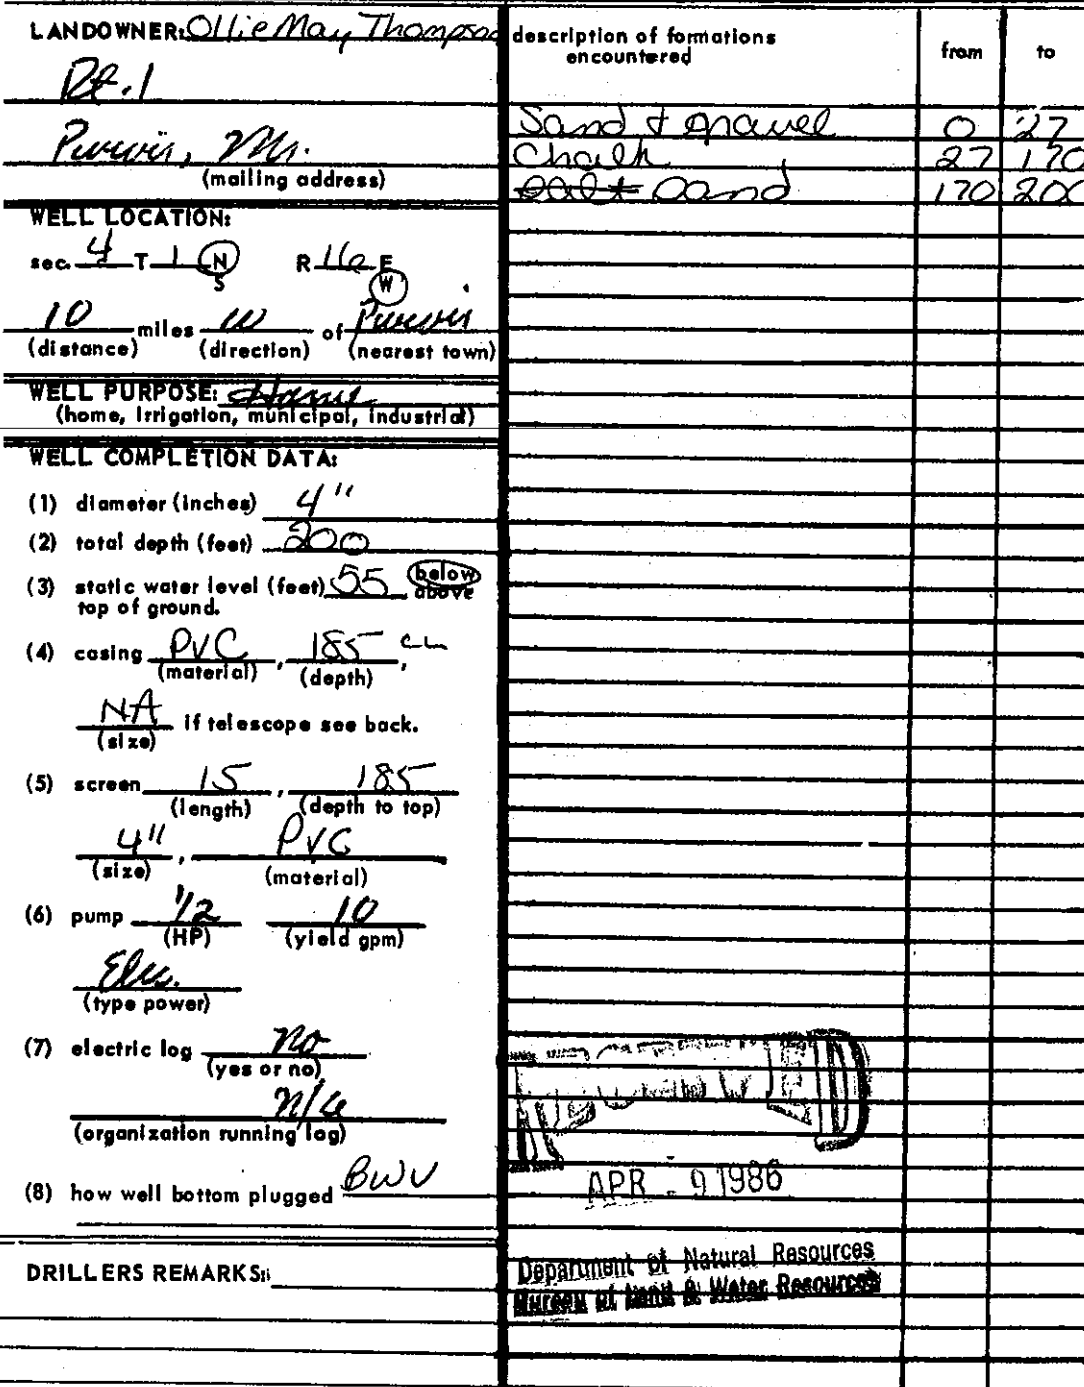 LANDOWNER: Ollie May Thompson
Rt. 1
Purvis, Ms.
(mailing address)
WELL LOCATION:
sec. 4 T 1 N R 16 E
S W
10 miles W of Purvis
(distance) (direction) (nearest town)
WELL PURPOSE: Home
(home, irrigation, municipal, industrial)
WELL COMPLETION DATA:
(1) diameter (inches) 4"
(2) total depth (feet) 200
(3) static water level (feet) 55 below
above
top of ground.
(4) casing PVC, 185,
(material) (depth)
NA if telescope see back.
(size)
(5) screen 15, 185
(length) (depth to top)
4", PVC
(size) (material)
(6) pump 1/2 10
(HP) (yield gpm)
Elec.
(type power)
(7) electric log no
(yes or no)
(organization running log)
(8) how well bottom plugged BWV
DRILLERS REMARKS:
description of formations
encountered from to
Sand & gravel 0 27
Chalk 27 170
Sand 170 200
RECEIVED
APR - 9 1986
Department of Natural Resources
Bureau of Land & Water Resources